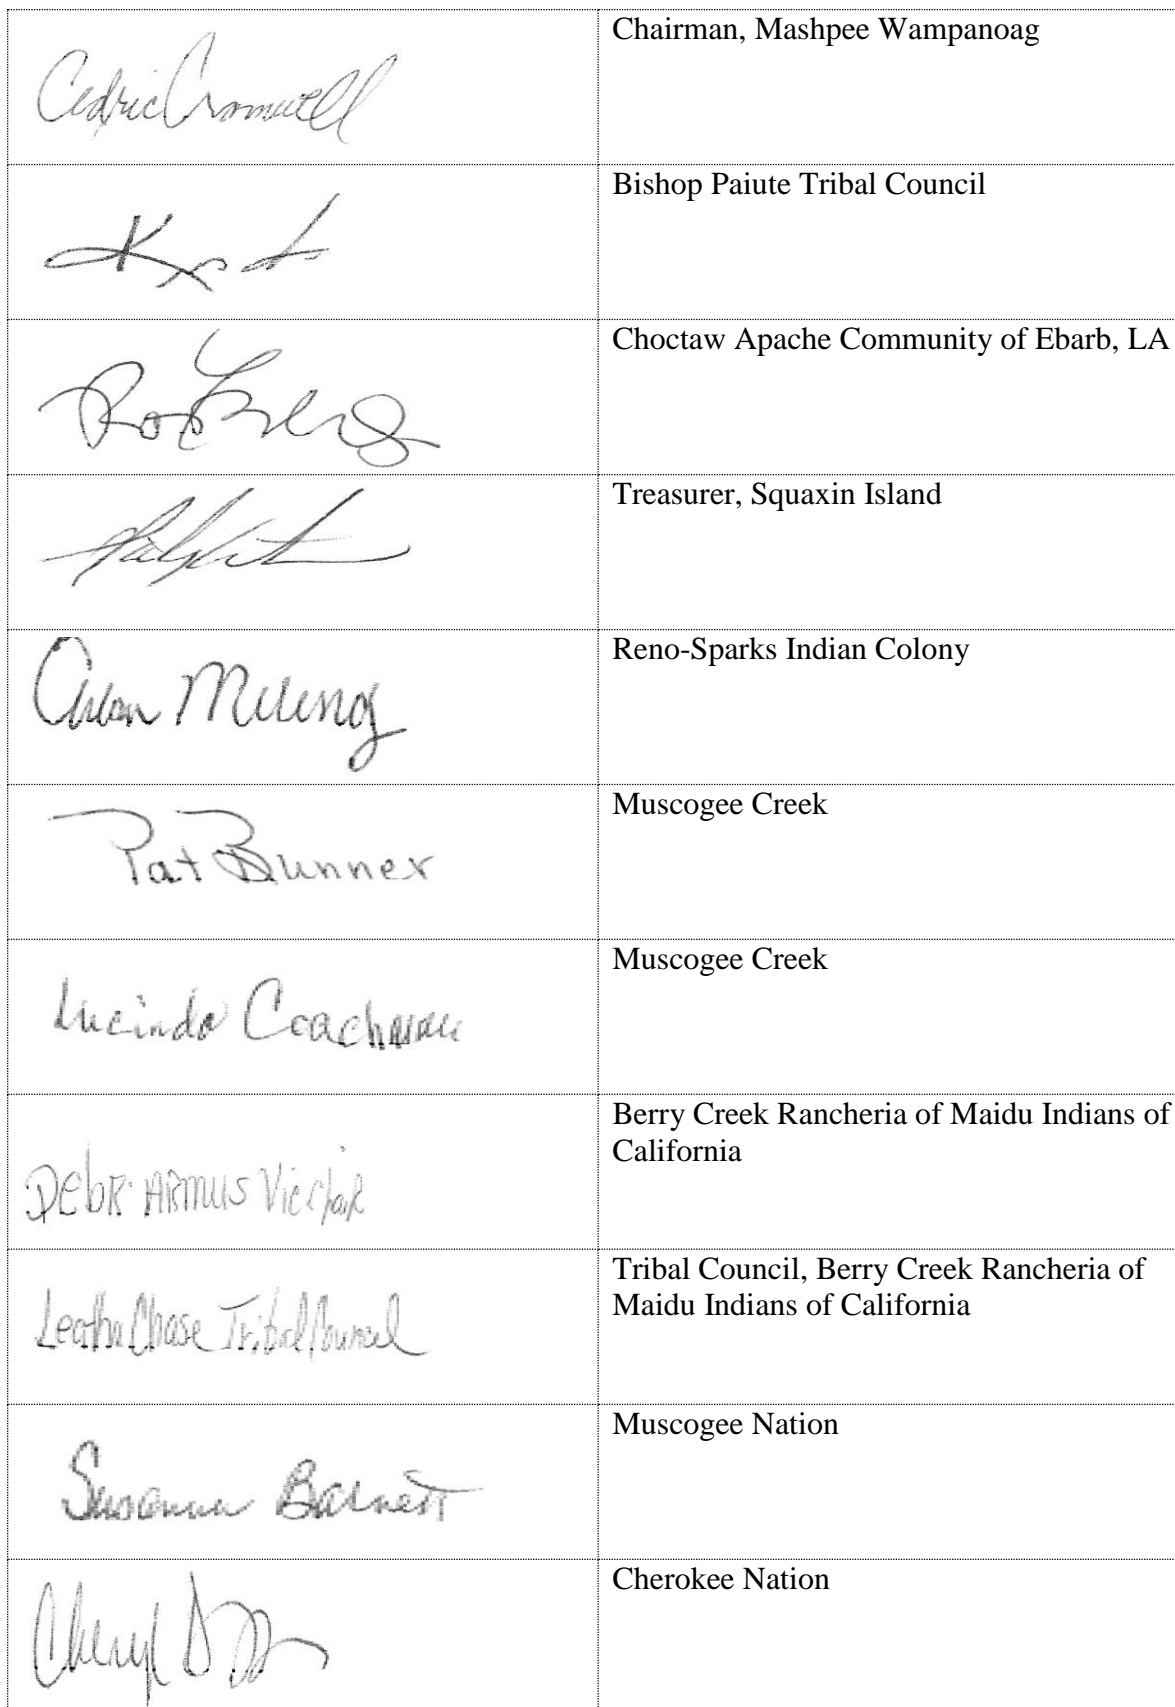 Cedric Cromwell
Chairman, Mashpee Wampanoag
Bishop Paiute Tribal Council
Choctaw Apache Community of Ebarb, LA
Treasurer, Squaxin Island
Reno-Sparks Indian Colony
Pat Bunner
Muscogee Creek
Lucinda Coachman
Muscogee Creek
ARMUS
Berry Creek Rancheria of Maidu Indians of
California
Chase Tribal Council
Tribal Council, Berry Creek Rancheria of
Maidu Indians of California
Barnett
Muscogee Nation
Cheryl
Cherokee Nation